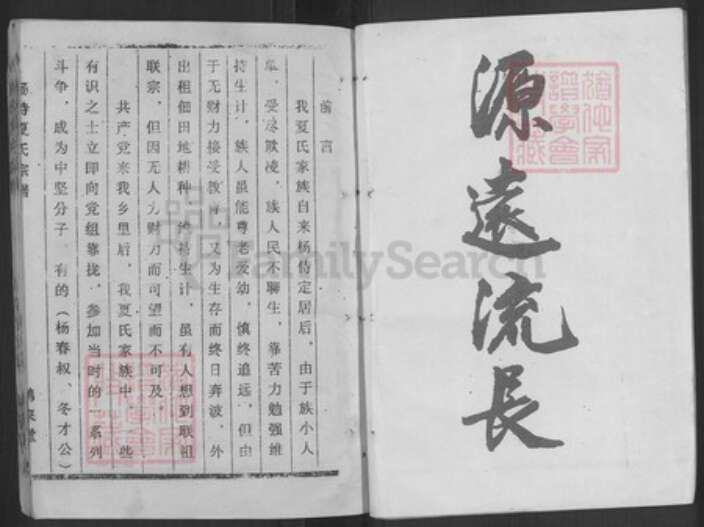 源遠流長
前言
我夏氏家族自来杨侍定居后，由于族小人
单，受尽欺凌，族人民不聊生，靠苦力勉强维
持生计，族人虽能尊老爱幼，慎终追远，但由
于无财力接受教育，又为生存而终日奔波，外
出租佃田地耕种，维持生计，虽有人想到联祖
联宗，但因无人力财力而可望而不可及。
共产党来我乡里后，我夏氏家族中一些
有识之士立即向党组靠拢，参加当时的一系列
斗争，成为中坚分子，有的（杨春叔、冬才公）
夏氏宗谱
FamilySearch